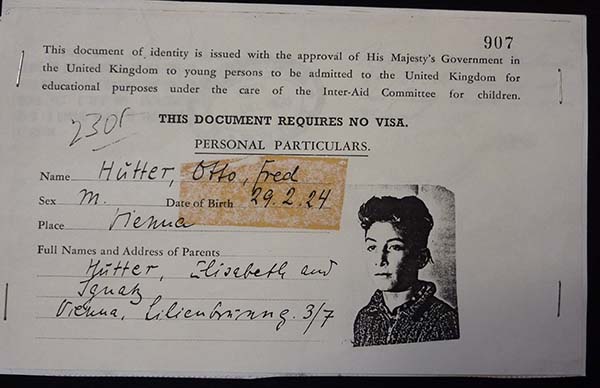 907
This document of identity is issued with the approval of His Majesty's Government in
the United Kingdom to young persons to be admitted to the United Kingdom for
educational purposes under the care of the Inter-Aid Committee for children.
THIS DOCUMENT REQUIRES NO VISA.
2305
PERSONAL PARTICULARS.
Name Hütter, Otto, Fred
Sex M. Date of Birth 29.2.24
Place Vienna
Full Names and Address of Parents
Hütter, Elisabeth and
Ignatz
Vienna, Lilienbrunng. 3/7